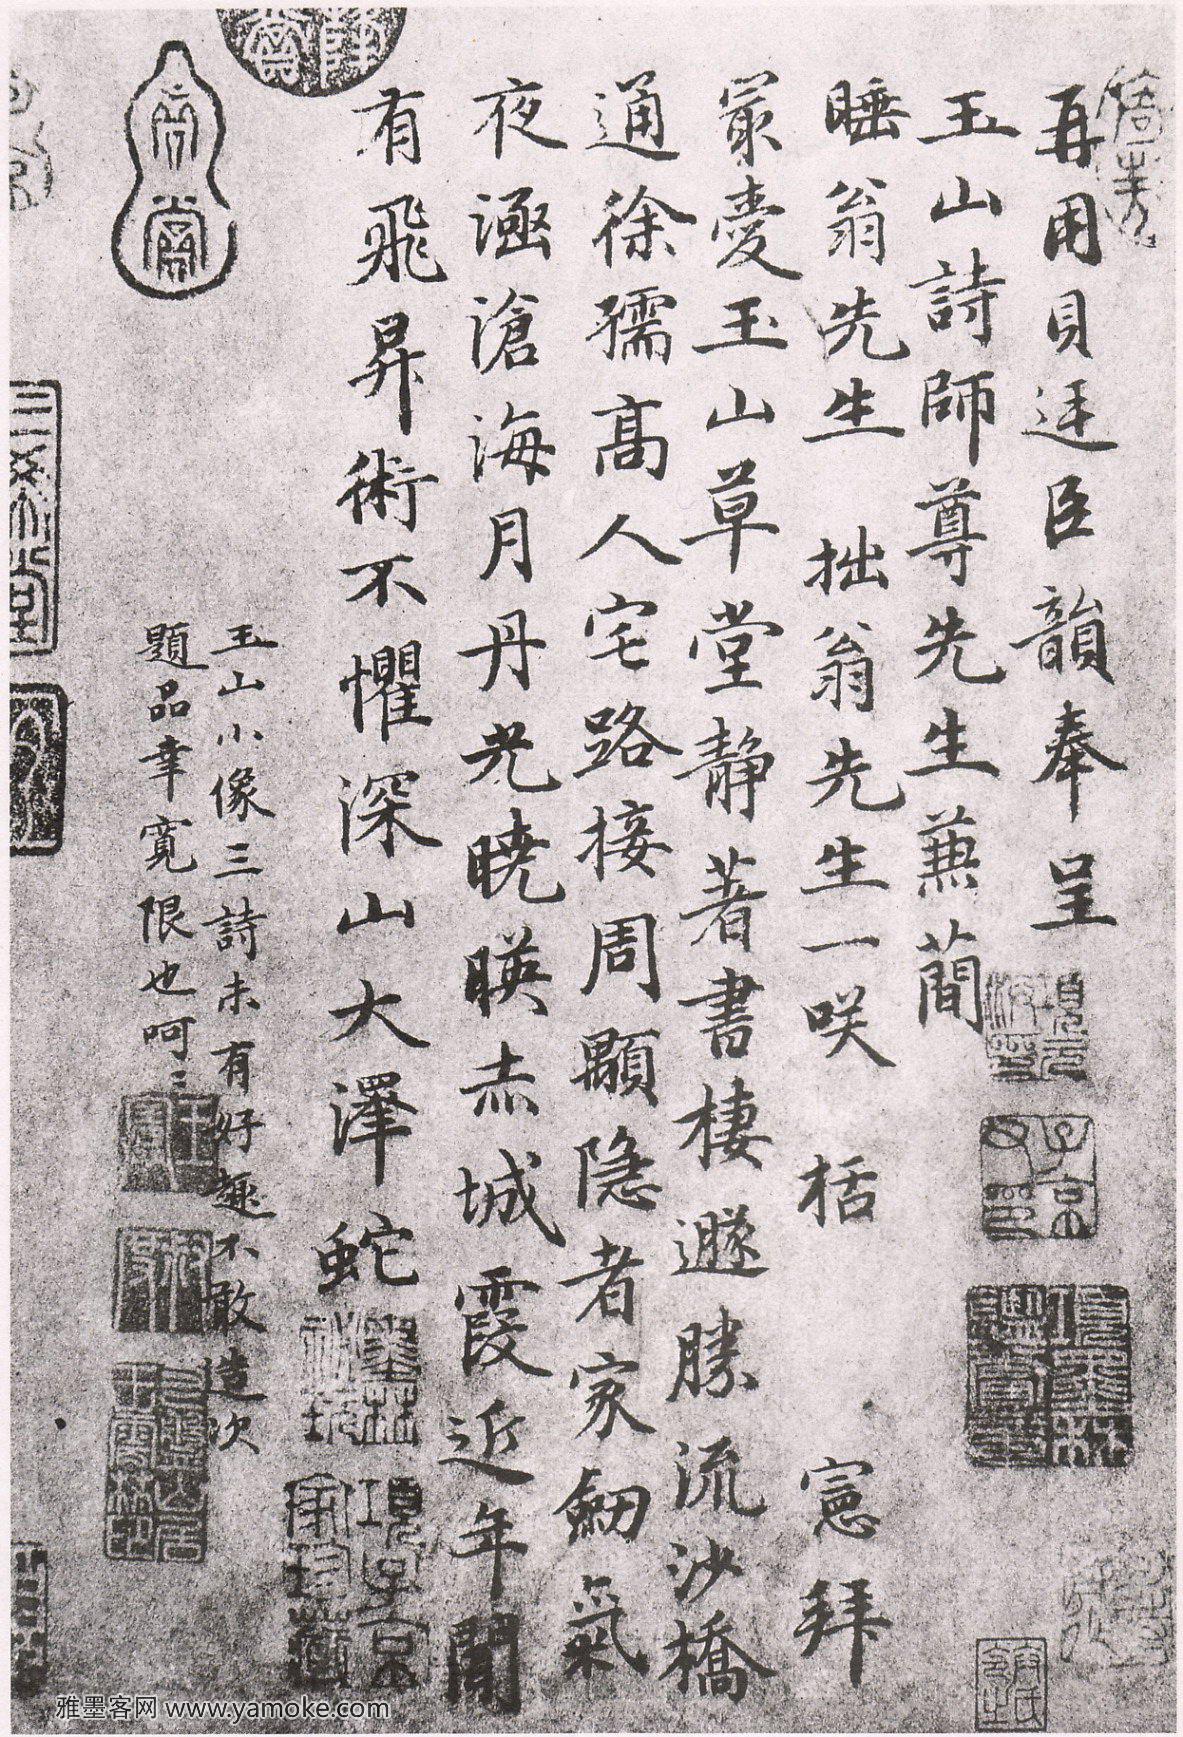 再用貝廷臣韻奉呈
玉山詩師尊先生兼蕳
睡翁先生 拙翁先生一咲 栝 憲拜
冣愛玉山草堂静著書棲遯勝流沙橋
通徐孺髙人宅路接周顒隐者家劒氣
夜涵滄海月丹光曉暎赤城霞近年聞
有飛昇術不懼深山大澤蛇
玉山小像三詩未有好趣不敢造次
題品幸寬限也呵〻
項子京
雅墨客网 www.yamoke.com